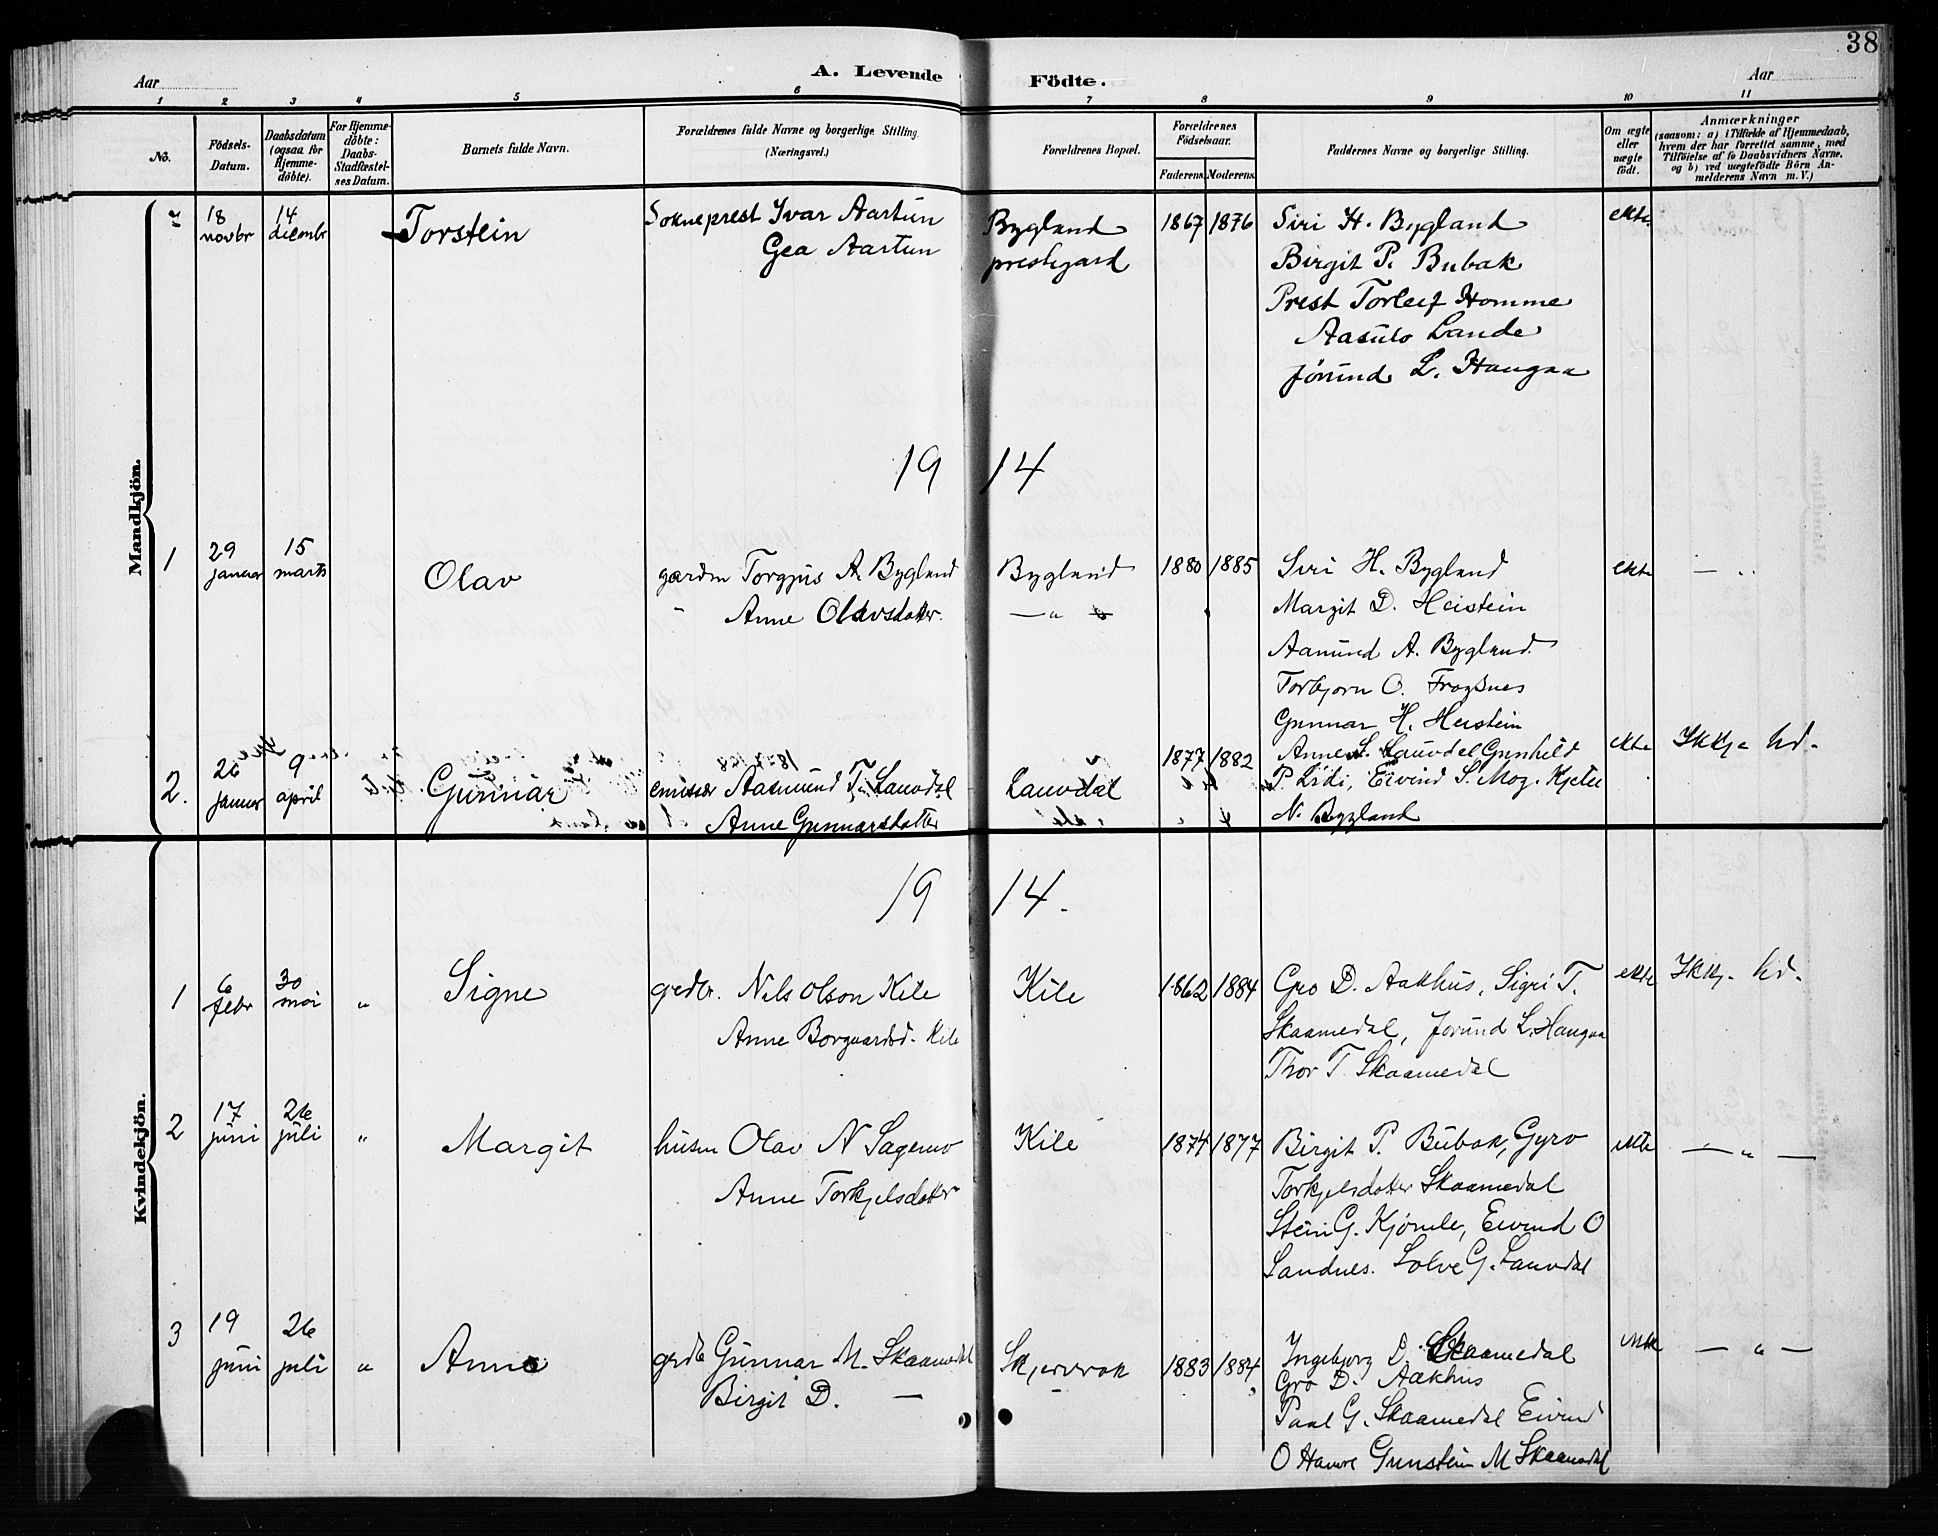 38
Aar
A. Levende Födte.
Aar
1 2 3 4 5 6 7 8 9 10 11
No.
Födsels-
Datum.
Daabsdatum
(ogsaa for
Hjemme-
döbte).
For Hjemme-
döbte:
Daabs-
Stadfæstel-
ses Datum.
Barnets fulde Navn.
Forældrenes fulde Navne og borgerlige Stilling.
(Næringsvei.)
Forældrenes Bopæl.
Forældrenes
Födselsaar.
Faderens. Moderens.
Faddernes Navne og borgerlige Stilling.
Om ægte
eller
uægte
födt.
Anmærkninger
(saasom: a) i Tilfælde af Hjemmedaab,
hvem der har forrettet samme, med
Tilföielse af to Daabsvidners Navne,
og b) ved uægtefödte Börn An-
melderens Navn m. V.)
Mandkjön.
7
18
novbr
14
dcembr
Torstein
Sokneprest Ivar Aartun
Gea Aartun
Bygland
prestegard
1867 1876
Siri H. Bygland
Birgit P. Bubak
Prest Torleif Homme
Aasulv Lande
Jórund L. Haugaa
ekte
19 14
1
29
januar
15
marts
Olav
gardm Torgjus A. Bygland
Anne Olavsdatter.
Bygland
— " —
1880 1885
Siri H. Bygland
Margit D. Heistein
Aamund A. Bygland
Torbjorn O. Froysnes
Gunnar H. Heistein
ekte
2.
26
januar
9
april
Gunnar
emissær Aasmund T. Lauvdal
Anne Gunnarsdatter
Lauvdal
1877 1882
Anne S. Lauvdal Gunhild
P. Lidi, Eivind S. Moy. Kjetil
N. Bygland
ekte
Ikkje tid.
Kvindekjön.
19 14.
1
6
febr
30
mai
"
Signe
grdbr. Nils Olson Kile
Anne Borgaardsd. Kile
Kile
1862 1884
Gro D. Aakhus, Sigri T.
Skaamedal, Jorund L. Haugaa
Thor T. Skaamedal
ekte
Ikkj. tid.
2
17
juni
26
juli
"
Margit
husm Olav N Sagemo
Anne Torkjelsdatter
Kile
1874 1877
Birgit P. Bubak, Gyro
Torkjelsdatter Skaamedal
Stein G. Kjómle, Eivind O
Sandnes. Solve G. Lauvdal
ekte
— " —
3
19
juni
26
juli
"
Anne
grdb Gunnar M. Skaamedal
Birgit D. —
Skjervrak
1883 1884
Ingebjorg D. Skaamedal
Gro D. Aakhus
Paal G. Skaamedal Eivind
O Hamre Gunstein M Skaamedal
ekte
— " —